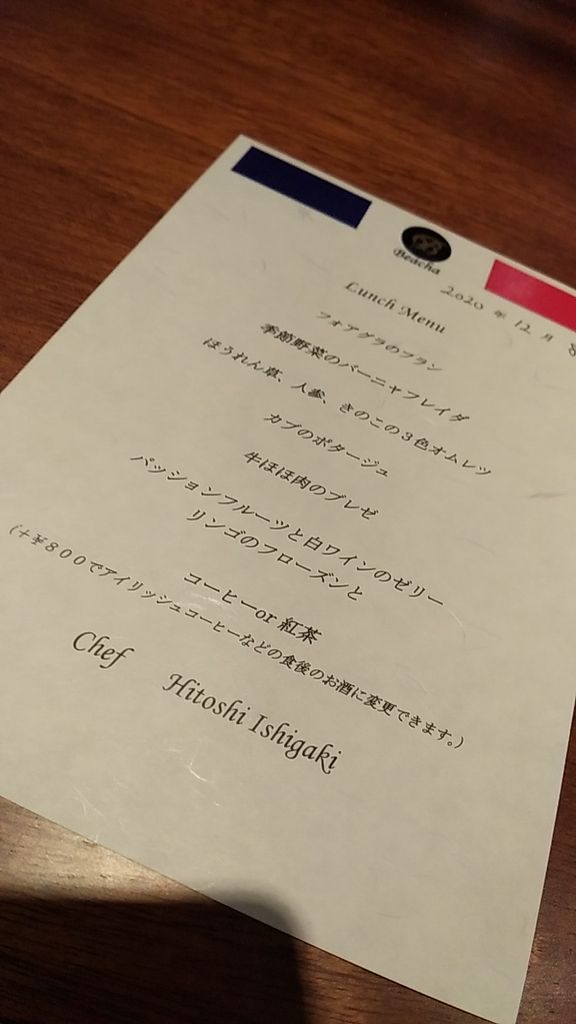 Beacha
Lunch Menu
2020 年 12 月 8
フォアグラのフラン
季節野菜のバーニャフレイダ
ほうれん草、人参、きのこの3色オムレツ
カブのポタージュ
牛ほほ肉のブレゼ
パッションフルーツと白ワインのゼリー
リンゴのフローズンと
コーヒーor 紅茶
(+¥800でアイリッシュコーヒーなどの食後のお酒に変更できます。)
Chef Hitoshi Ishigaki